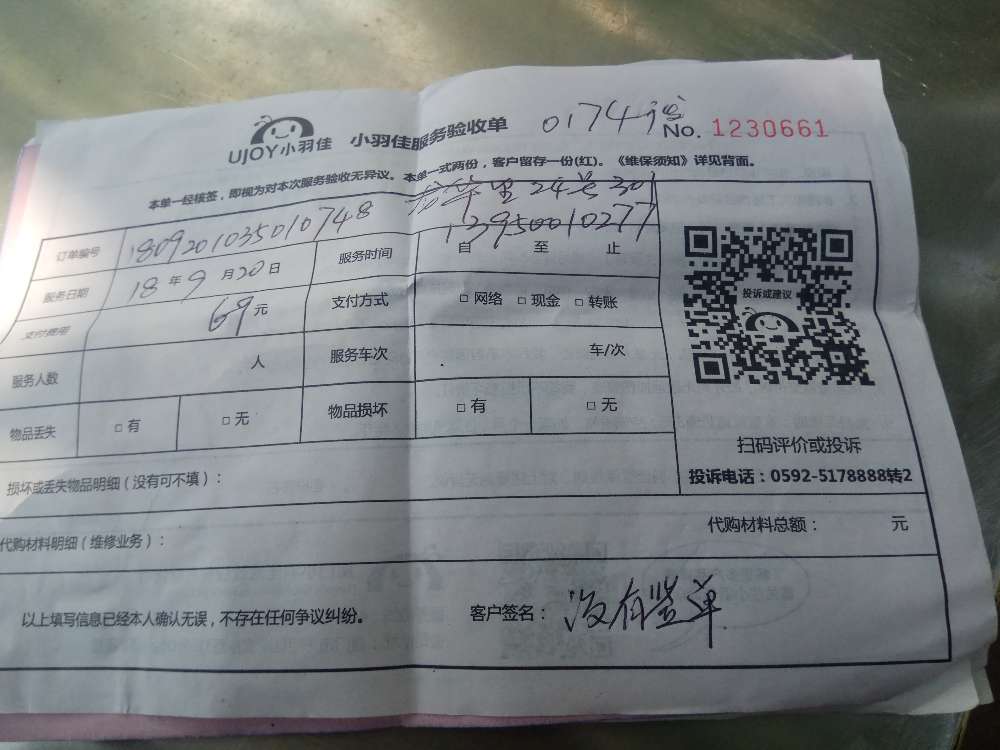 UJOY小羽佳 小羽佳服务验收单 0174 No. 1230661
本单一经核签，即视为对本次服务验收无异议。本单一式两份，客户留存一份(红)。《维保须知》详见背面。
里24号301
13950010277
订单编号 180920103501 0748 服务时间 自 至 止
服务日期 18年9月20日
支付费用 69元 支付方式 □ 网络 □ 现金 □ 转账
服务人数 人 服务车次 车/次
物品丢失 □ 有 □ 无 物品损坏 □ 有 □ 无
投诉或建议
扫码评价或投诉
投诉电话：0592-5178888转2
损坏或丢失物品明细（没有可不填）：
代购材料明细（维修业务）： 代购材料总额： 元
以上填写信息已经本人确认无误，不存在任何争议纠纷。 客户签名：没有签单